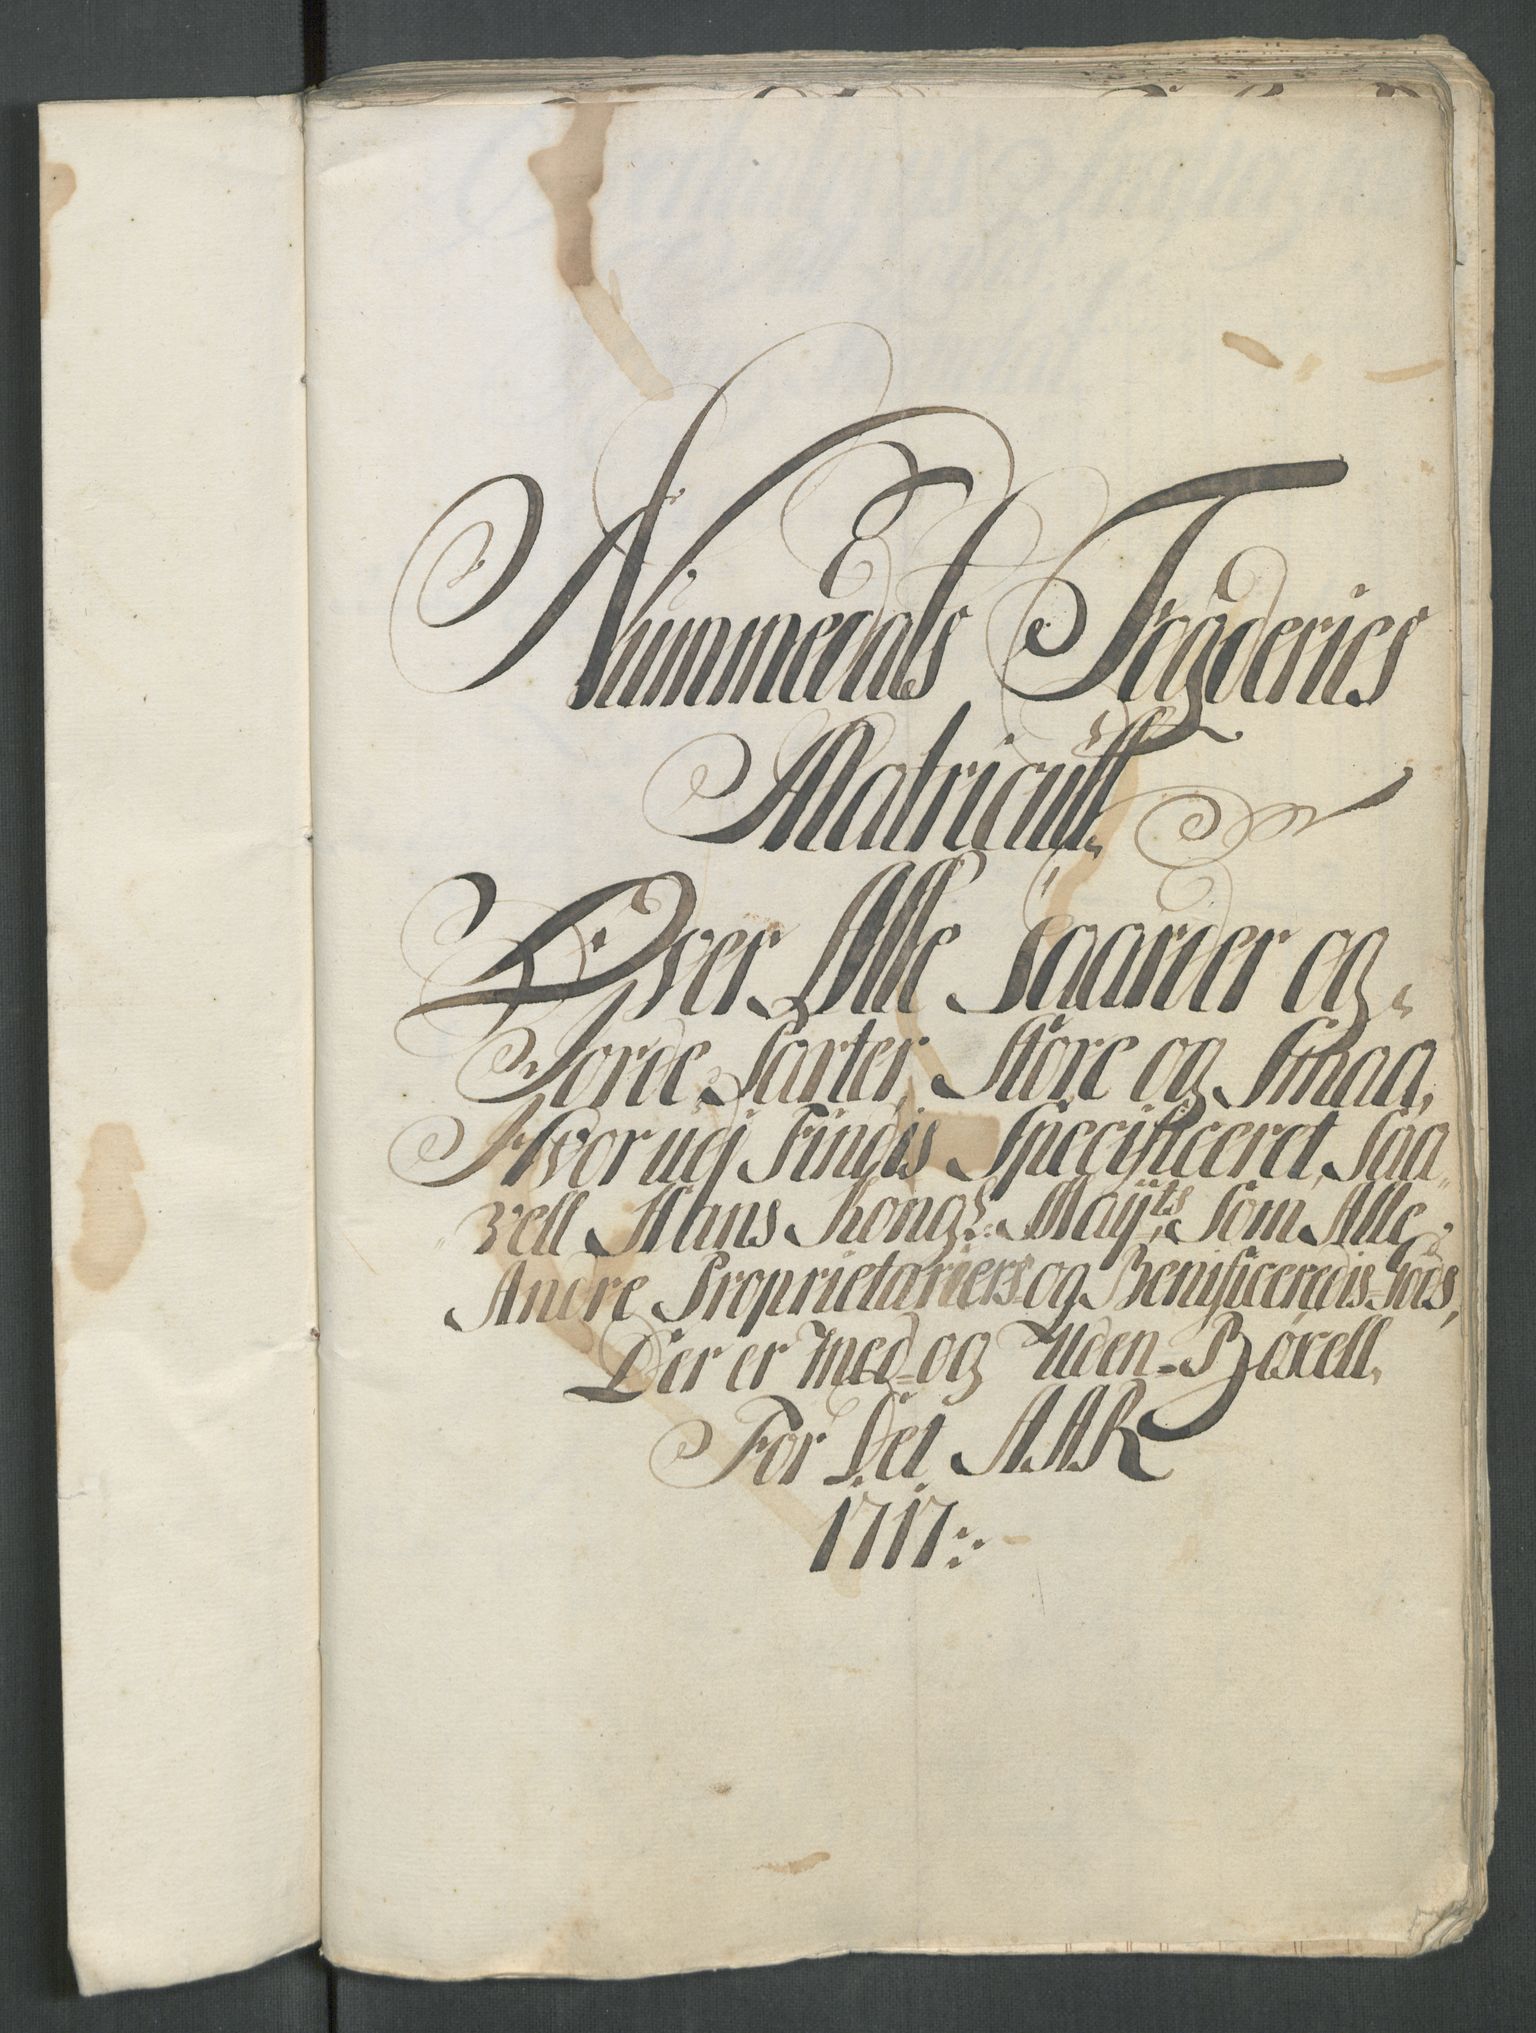 Nummedals Fogderies
Matricull
Over Alle Gaarder og
Jorde Parter, Store og Smaa,
Hvorudj Findis Specificeret, Saa
vell Hans Kongl: Mayts, Som Alle
Andre Proprietariers og Benificeredis Gods,
Der er Med og Uden-Böxell,
For Det AAR
1717